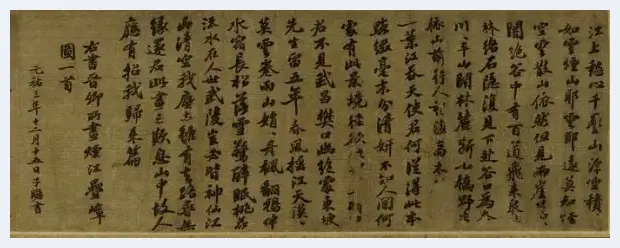 江上愁心千疊山浮空積
如雲煙山耶雲耶遠莫知煙
空雲散山依然但見兩崖
闇絕谷中有百道飛來泉
林絡石隱復見下赴谷口為奔
川平山開林麓斷小橋野店
依山前行人稍度喬木
一葉江吞天使君何從得此本
點綴毫末分清妍不知人間何
處有此境徑欲
君不見武昌樊口幽絕處東坡
先生留五年春風搖江天漠
莫雲卷雨山娟丹楓翻鴉伴
水宿長松落雪驚醉眠桃花
流水在人世武陵豈必皆神仙江
山清空我塵土雖有去路尋無
緣還君此畫三歎息山中故人
應有招我歸來篇
右書晉卿所畫煙江疊嶂
圖一首
元祐三年十二月十五日子瞻書